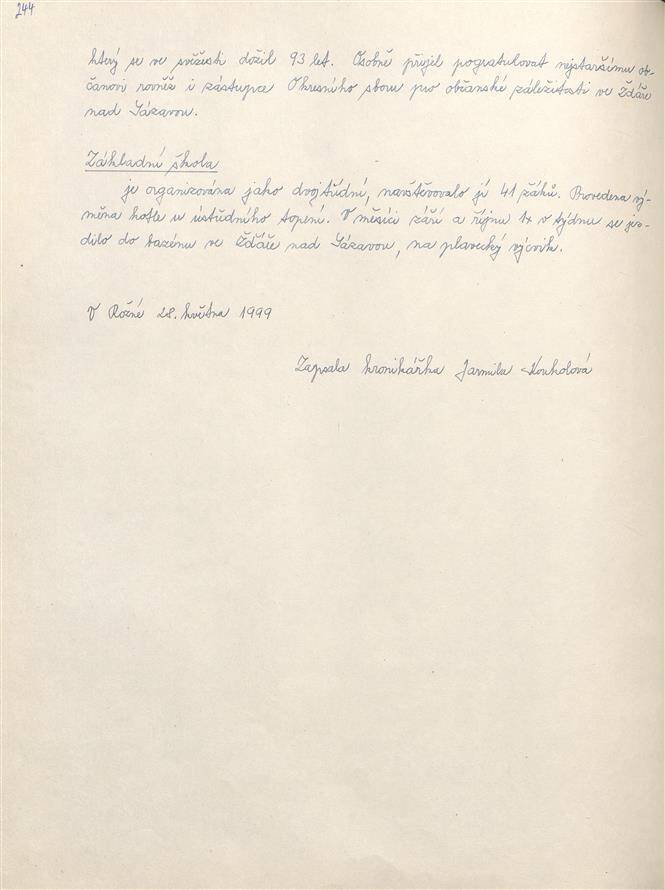 244
který se ve svěžesti dožil 93 let. Osobně přijel pogratulovat nejstaršímu ob-
čanovi rovněž i zástupce Okresního sboru pro občanské záležitosti ve Žďáře
nad Sázavou.
Základní škola
je organizována jako dvojtřídní, navštěvovalo jí 41 žáků. Provedena vý-
měna kotle u ústředního topení. V měsíci září a říjnu 1x v týdnu se jez-
dilo do bazénu ve Žďáře nad Sázavou, na plavecký výcvik.
V Rožné 28. května 1999
Zapsala kronikářka Jarmila Koukolová